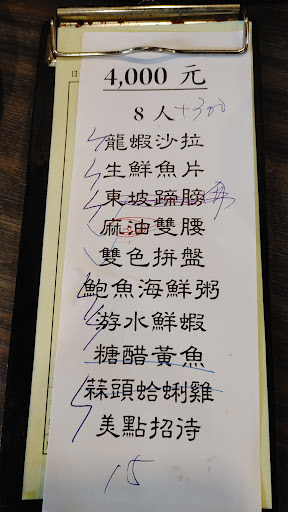 4,000 元
8人 +300
龍蝦沙拉
生鮮魚片
東坡蹄膀
麻油雙腰
雙色拼盤
鮑魚海鮮粥
游水鮮蝦
糖醋黃魚
蒜頭蛤蜊雞
美點招待
15